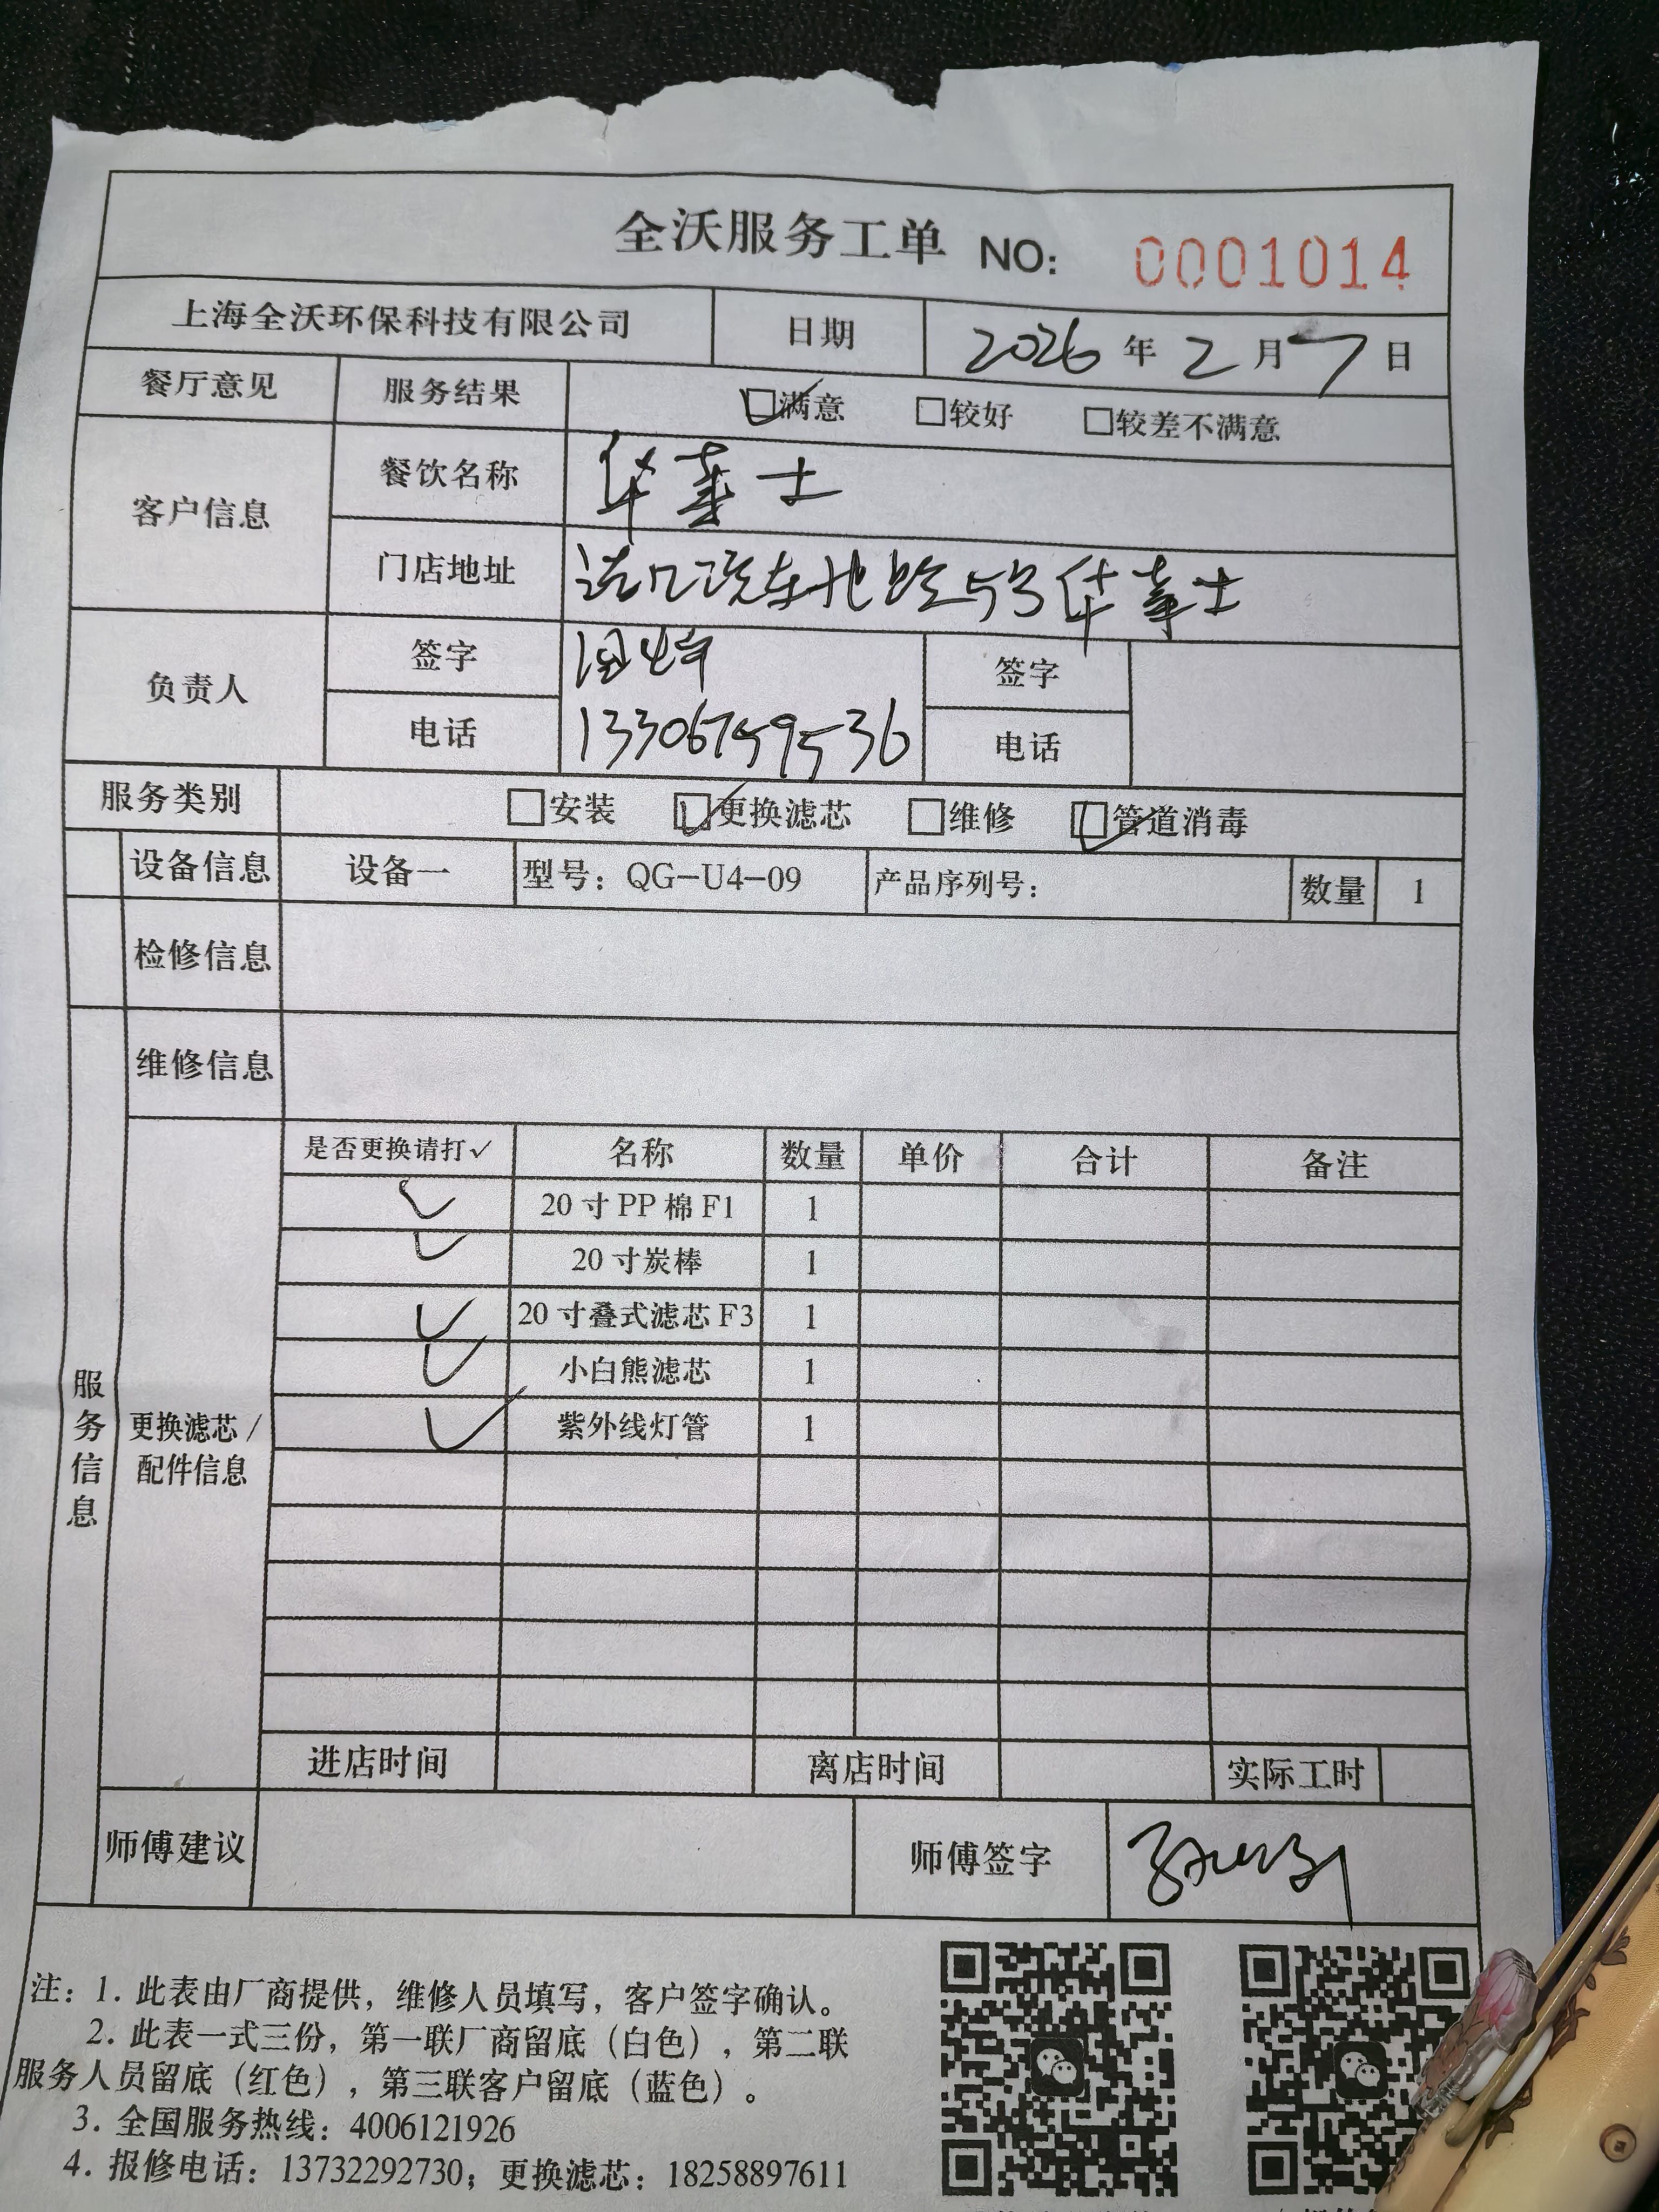 全沃服务工单 NO: 0001014
上海全沃环保科技有限公司 日期 2026年2月7日
餐厅意见 服务结果 满意 较好 较差不满意
客户信息 餐饮名称 华莱士
门店地址 5号华莱士
负责人 签字 签字
电话 13306759536 电话
服务类别 安装 更换滤芯 维修 管道消毒
设备信息 设备一 型号：QG-U4-09 产品序列号： 数量 1
检修信息
维修信息
服务信息
更换滤芯/
配件信息
是否更换请打✓ 名称 数量 单价 合计 备注
✓ 20寸PP棉F1 1
✓ 20寸炭棒 1
✓ 20寸叠式滤芯F3 1
✓ 小白熊滤芯 1
✓ 紫外线灯管 1
进店时间 离店时间 实际工时
师傅建议 师傅签字
注：1. 此表由厂商提供，维修人员填写，客户签字确认。
2. 此表一式三份，第一联厂商留底（白色），第二联
服务人员留底（红色），第三联客户留底（蓝色）。
3. 全国服务热线：4006121926
4. 报修电话：13732292730；更换滤芯：18258897611